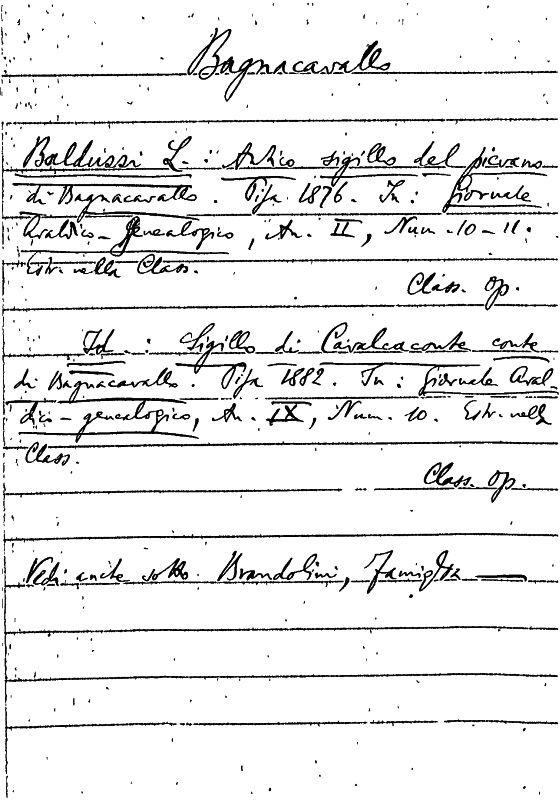 Bagnacavallo
Balduzzi L. : Antico sigillo del pievano
di Bagnacavallo. Pisa 1876. In : Giornale
araldico-genealogico, An. II, Num. 10-11.
Estr. nella Class.
Class. Op.
Id. : Sigillo di Cavalcaconte conte
di Bagnacavallo. Pisa 1882. In : Giornale Aral-
dico-genealogico, An. IX, Num. 10. Estr. nella
Class.
Class. Op.
Vedi anche sotto Brandolini, Famiglia —